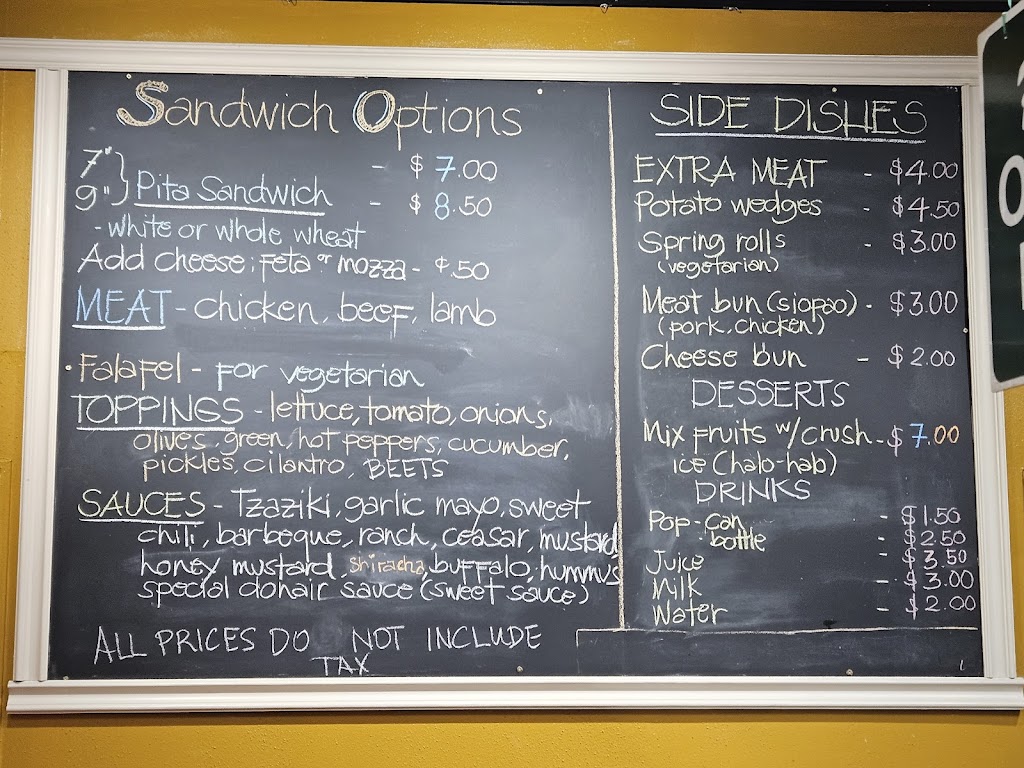 Sandwich Options
7" - $ 7.00
9" } Pita Sandwich - $ 8.50
- white or whole wheat
Add cheese; feta or mozza - ¢.50
MEAT - chicken, beef, lamb
• Falafel - for vegetarian
TOPPINGS - lettuce, tomato, onions,
olives, green, hot peppers, cucumber,
pickles, cilantro, BEETS
SAUCES - Tzaziki, garlic mayo, sweet
chili, barbeque, ranch, ceasar, mustard
honey mustard, shiracha, buffalo, hummus
special donair sauce (sweet sauce)
ALL PRICES DO NOT INCLUDE
TAX
SIDE DISHES
EXTRA MEAT - $4.00
Potato wedges - $4.50
Spring rolls - $3.00
(vegetarian)
Meat bun (siopao) - $3.00
(pork, chicken)
Cheese bun - $2.00
DESSERTS
Mix fruits w/ crush - $7.00
ice (halo-hab)
DRINKS
Pop - can - $1.50
bottle - $2.50
Juice - $3.50
Milk - $3.00
Water - $2.00